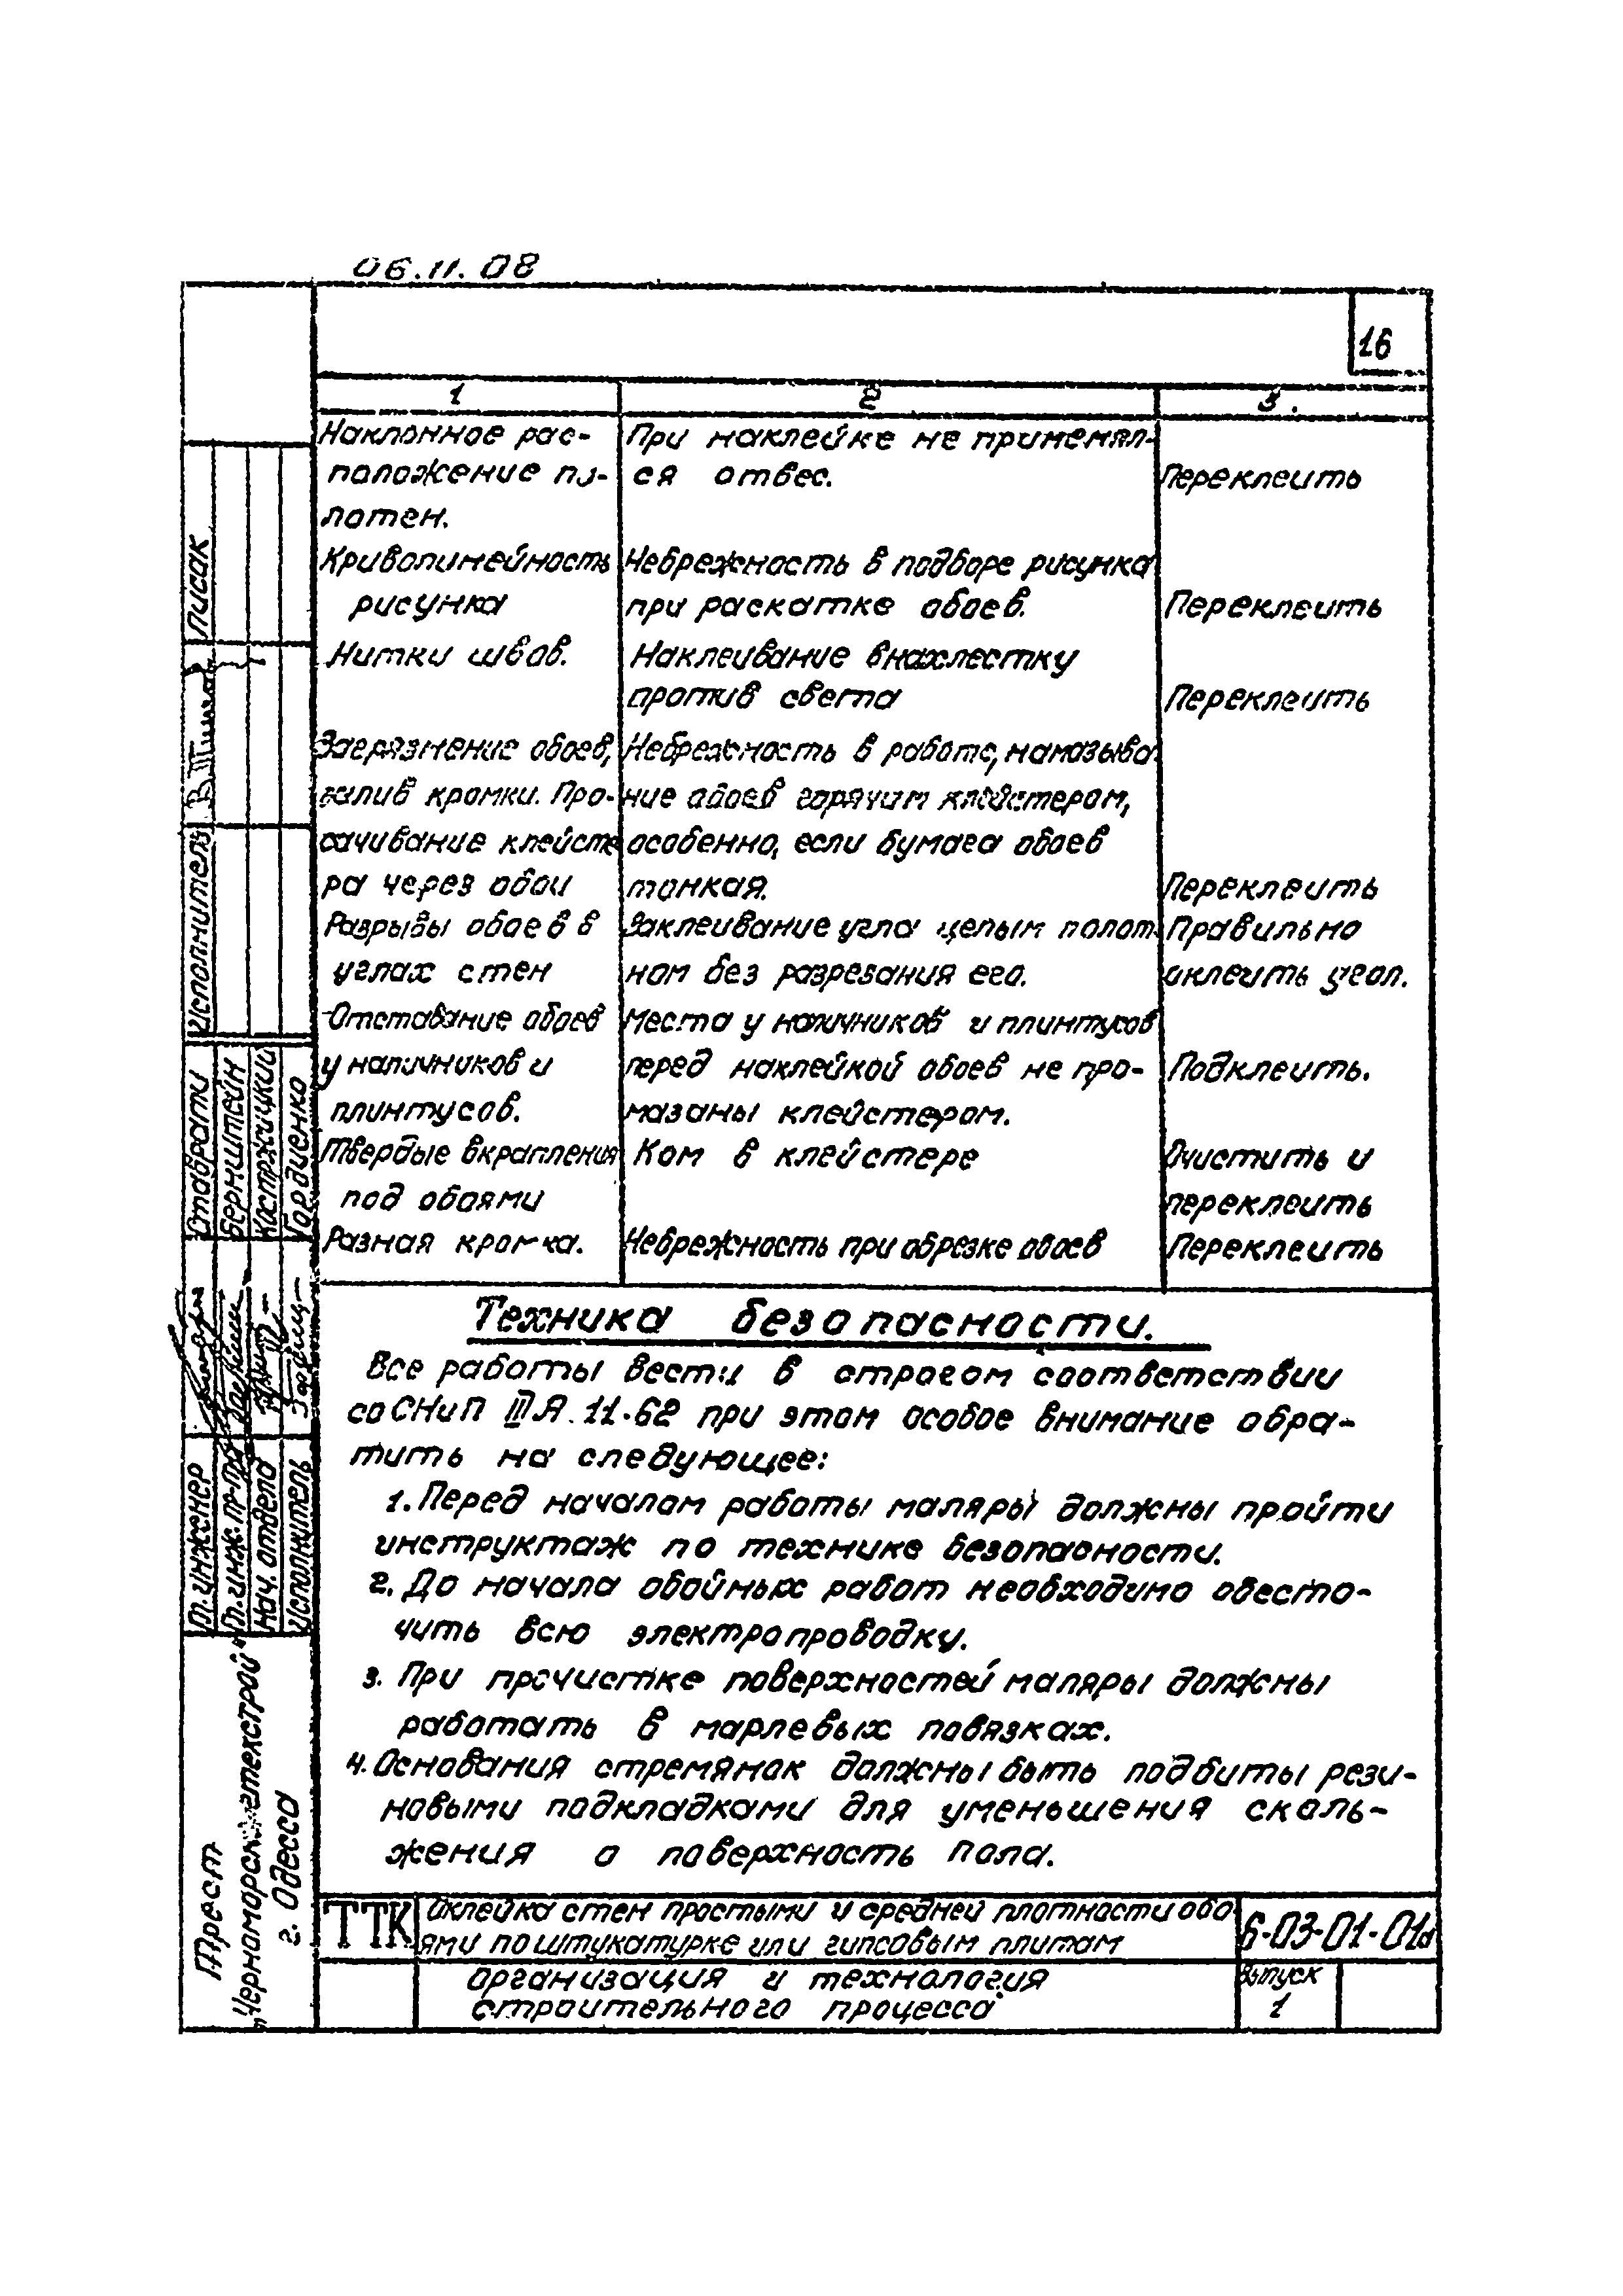 06.11.08
16
1 2 3.
Наклонное рас-
положение по-
лотен.
При наклейке не применял-
ся отвес.
Переклеить
Криволинейность
рисунка
Небрежность в подборе рисунка
при раскатке обоев.
Переклеить
Нитки швов.
Наклеивание внахлестку
против света
Переклеить
Загрязнение обоев,
залив кромки. Про-
сачивание клейсте
ра через обои
Небрежность в работе, намазыва
ние обоев горячим клейстером,
особенно, если бумага обоев
тонкая.
Переклеить
Разрывы обоев в
углах стен
Заклеивание угла целым полот-
ном без разрезания его.
Правильно
оклеить угол.
Отставание обоев
у наличников и
плинтусов.
Места у наличников и плинтусов
перед наклейкой обоев не про-
мазаны клейстером.
Подклеить.
Твердые вкрапления
под обоями
Ком в клейстере
Очистить и
переклеить
Разная кромка.
Небрежность при обрезке обоев
Переклеить
Техника безопасности.
Все работы вести в строгом соответствии
со СНиП III Я.11-62 при этом особое внимание обра-
тить на следующее:
1. Перед началом работы маляры должны пройти
инструктаж по технике безопасности.
2. До начала обойных работ необходимо обесто-
чить всю электропроводку.
3. При прочистке поверхностей маляры должны
работать в марлевых повязках.
4. Основания стремянок должны быть подбиты рези-
новыми подкладками для уменьшения сколь-
жения о поверхность пола.
ТТК
Оклейка стен простыми и средней плотности обо-
ями по штукатурке или гипсовым плитам
6-03-01-01а
Организация и технология
строительного процесса
Выпуск
1
Писак
Исполнитель
Ставрати
Бернштейн
Костржицкий
Гордиенко
Гл. инженер
Гл. инж. пр-та
Нач. отдела
Исполнитель
Трест
"Черноморскоргтехстрой"
г. Одесса